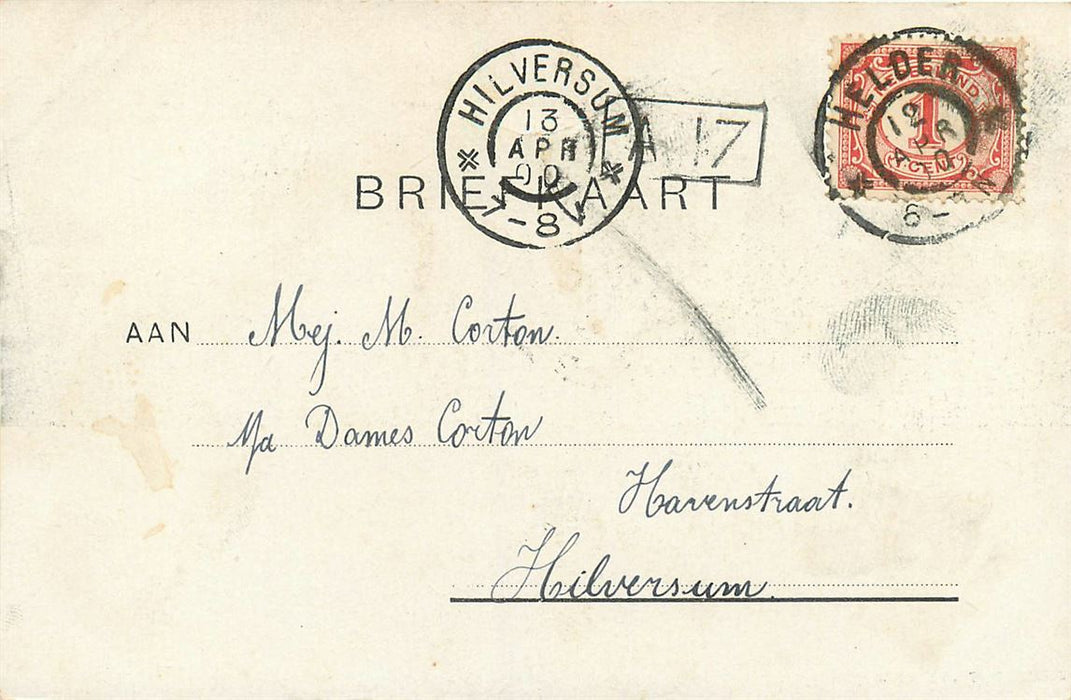 HILVERSUM
13
APR
00
7-8V
A 17
HELDER
12
APR
00
1
CENT
BRIEFKAART
AAN Mej. M. Corton.
p/a Dames Corton
Havenstraat.
Hilversum.